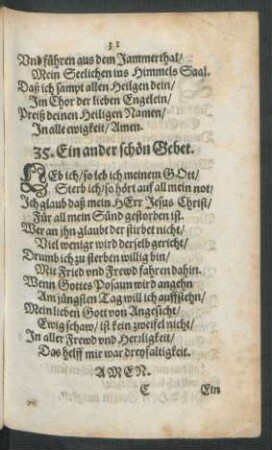 31
Vnd führen aus dem Jammerthal/
Mein Seelichen ins Himmels Saal.
Daß ich sampt allen Heilgen dein/
Im Chor der lieben Engelein/
Preiß deinen Heiligen Namen/
In alle ewigkeit/ Amen.
35. Ein ander schön Gebet.
LEb ich/ so leb ich meinem GOtt/
Sterb ich/ so hört auf all mein not/
Ich glaub daß mein HErr Jesus Christ/
Für all mein Sünd gestorben ist.
Wer an ihn glaubt der stirbet nicht/
Viel wenigr wird derselb gericht/
Drumb ich zu sterben willig bin/
Mit Fried vnd Frewd fahren dahin.
Wenn Gottes Posaun wird angehn
Am jüngsten Tag will ich auffstehn/
Mein lieben Gott von Angesicht/
Ewig schaw/ ist kein zweifel nicht/
In aller Frewd vnd Herzligkeit/
Das helff mir war dreyfaltigkeit.
AMEN.
C Ein